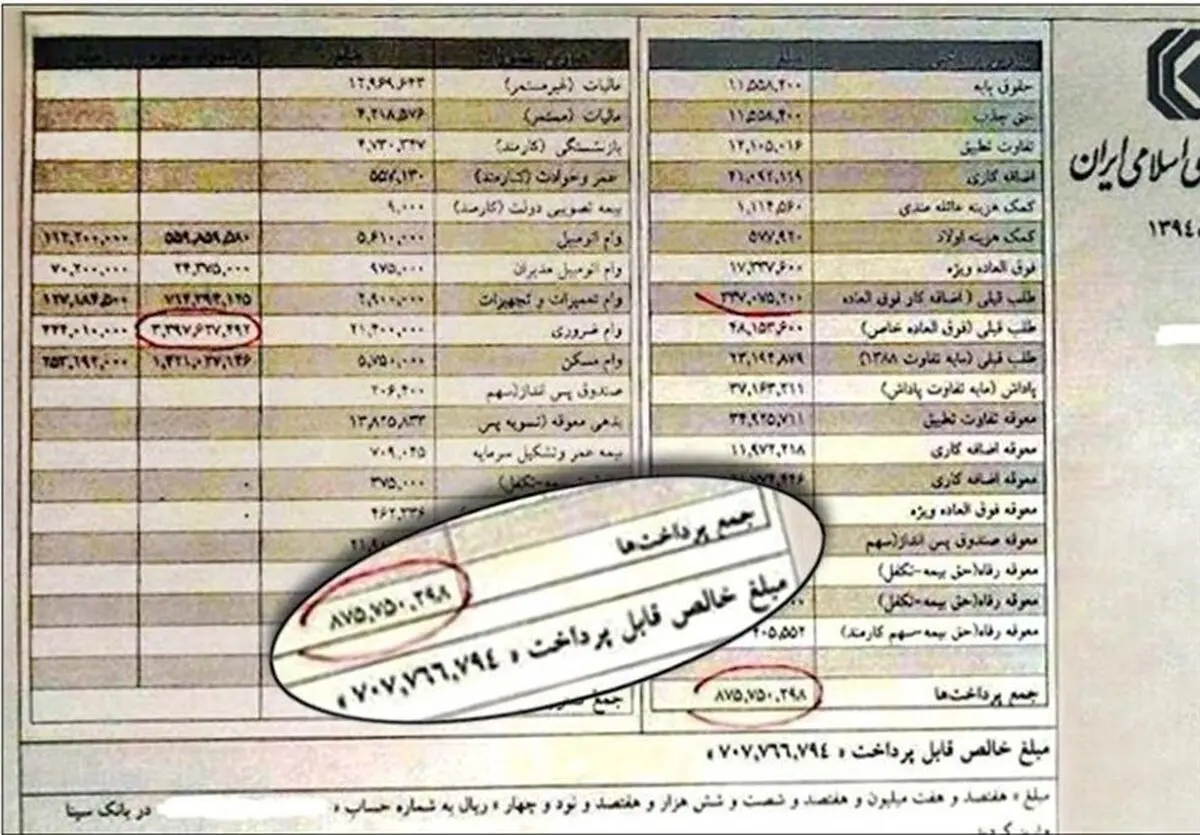 ی اسلامی ایران
۱۳۹٤
حقوق پایه ۱۱,۵۵۸,۴۰۰
حق جذب ۱۱,۵۵۸,۴۰۰
تفاوت تطبیق ۱۲,۱۰۵,۰۱۶
اضافه کاری ۴۱,۰۹۲,۱۴۹
کمک هزینه عائله مندی ۱,۱۱۴,۵۶۰
کمک هزینه اولاد ۵۷۷,۹۲۰
فوق العاده ویژه ۱۷,۳۳۷,۶۰۰
طلب قبلی ( اضافه کار فوق العاده ۳۳۷,۰۷۵,۲۰۰
طلب قبلی (فوق العاده خاص) ۴۸,۱۵۳,۶۰۰
طلب قبلی (مابه تفاوت ۱۳۸۸) ۲۳,۱۹۴,۸۷۹
پاداش (مابه تفاوت پاداش) ۳۷,۱۶۳,۲۱۱
معوقه تفاوت تطبیق ۳۴,۹۲۵,۷۱۱
معوقه اضافه کاری ۱۱,۹۷۲,۲۱۸
معوقه اضافه کاری
معوقه فوق العاده ویژه
معوقه صندوق پس انداز(سهم
معوقه رفاه(حق بیمه-تکفل)
معوقه رفاه(حق بیمه-تکفل)
معوقه رفاه(حق بیمه-سهم کارمند) ۴۰۵,۵۵۲
جمع پرداخت‌ها ۸۷۵,۷۵۰,۲۹۸
مالیات (غیرمستمر) ۱۲,۹۶۹,۶۴۳
مالیات (مستمر) ۴,۲۱۸,۵۷۶
بازنشستگی (کارمند) ۴,۷۳۰,۳۴۷
عمر وحوادث (کارمند) ۵۵۷,۱۳۰
بیمه تصویبی دولت (کارمند) ۹,۰۰۰
وام اتومبیل ۵,۶۱۰,۰۰۰ ۵۵۹,۸۵۹,۵۸۰ ۱۱۲,۲۰۰,۰۰۰
وام اتومبیل مدیران ۹۷۵,۰۰۰ ۲۴,۳۷۵,۰۰۰ ۷۰,۲۰۰,۰۰۰
وام تعمیرات و تجهیزات ۲,۹۰۰,۰۰۰ ۷۱۲,۲۹۳,۱۲۵ ۱۲۷,۱۸۴,۵۰۰
وام ضروری ۲۱,۴۰۰,۰۰۰ ۳,۳۹۷,۶۳۷,۴۹۲ ۴۴۴,۰۱۰,۰۰۰
وام مسکن ۵,۷۵۰,۰۰۰ ۱,۴۲۱,۰۳۷,۱۴۶ ۲۵۳,۱۹۲,۰۰۰
صندوق پس انداز(سهم ۲۰۶,۴۰۰
بدهی معوقه (تسویه پس ۱۳,۸۲۵,۸۳۳
بیمه عمر وتشکیل سرمایه ۷۰۹,۰۲۵
۳۷۵,۰۰۰ ۰
۴۶۲,۲۳۶ ۰
جمع
جمع پرداخت‌ها
۸۷۵,۷۵۰,۲۹۸
مبلغ خالص قابل پرداخت « ۷۰۷,۷٦٦,۷۹٤ »
مبلغ خالص قابل پرداخت « ۷۰۷,۷٦٦,۷۹٤ »
مبلغ « هفتصد و هفت میلیون و هفتصد و شصت و شش هزار و هفتصد و نود و چهار » ریال به شماره حساب « در بانک سینا